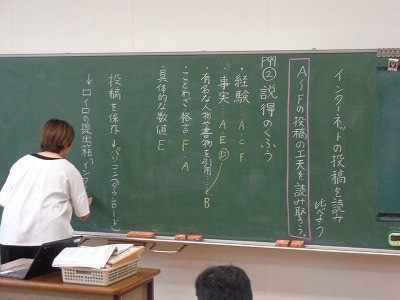 インターネットの投稿を読み
比べよう
A～Fの投稿の工夫を読み取ろう。
P99
② 説得のくふう
・経験 A・C・F
・事実 A・E・D
・有名な人物や書物を引用 B
・ことわざ・格言 F・A
・具体的な数値 E
投稿を保存
↓ロイロの提出箱